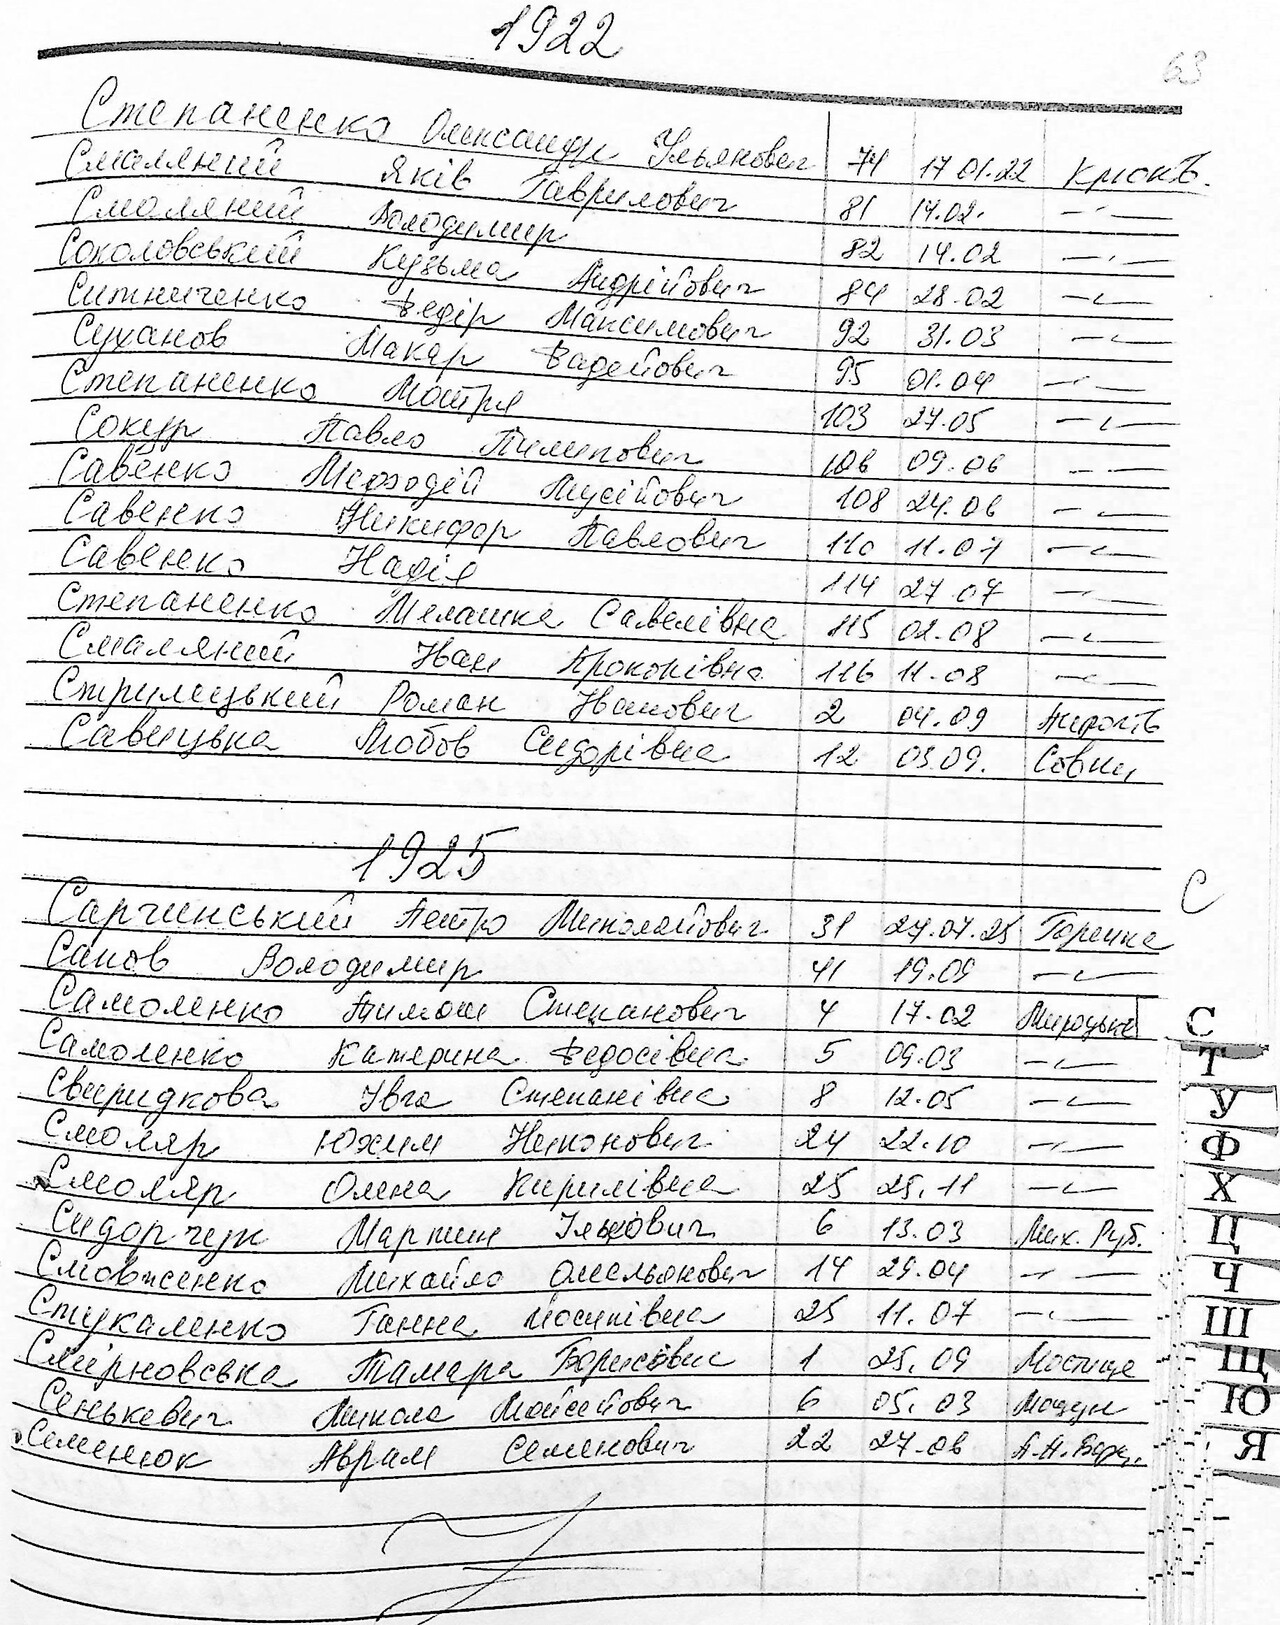 1922
63
Степаненко Олександр Ульянович 74 17.01.22 Крюків.
Смаляний Яків Гаврилович 81 14.02. —"—
Смоляний Володимир 82 14.02 —"—
Соколовський Кузьма Андрійович 84 28.02 —"—
Ситниченко Федір Максимович 92 31.03 —"—
Суханов Макар Фадейович 95 01.04 —"—
Степаненко Мотря 103 27.05 —"—
Сокур Павло Пилипович 106 09.06 —"—
Савенко Мефодій Мусійович 108 24.06 —"—
Савенко Никифор Павлович 110 11.07 —"—
Савенко Надія 114 27.07 —"—
Степаненко Мелашка Савелівна 115 02.08 —"—
Смаляний Іван Прокопівна 116 11.08 —"—
Стрилецький Роман Іванович 2 04.09
Савицька Любов Сидорівна 12 03.09. Совки
1925
С
Сарчинський Петро Миколайович 31 27.07.25 Горенка
Сапов Володимир 41 19.09 —"—
Самоленко Тимош Степанович 4 17.02 Мироцьке
Самоленко Катерина Федосівна 5 09.03 —"—
Свиридкова Івга Степанівна 8 12.05 —"—
Смоляр Юхим Никонович 24 22.10 —"—
Смоляр Олена Кирилівна 25 25.11 —"—
Сидорчук Мартин Ількович 6 13.03 Мих. Руб.
Смовженко Михайло Омельянович 14 29.04 —"—
Стукаленко Ганна Йосипівна 25 11.07 —"—
Смірновська Тамара Борисовна 1 25.09 Мостище
Сенькевич Микола Мойсейович 6 05.03 Мощун
Семенюк Аврам Семенович 22 27.06
С
Т
У
Ф
Х
Ц
Ч
Ш
Щ
Ю
Я